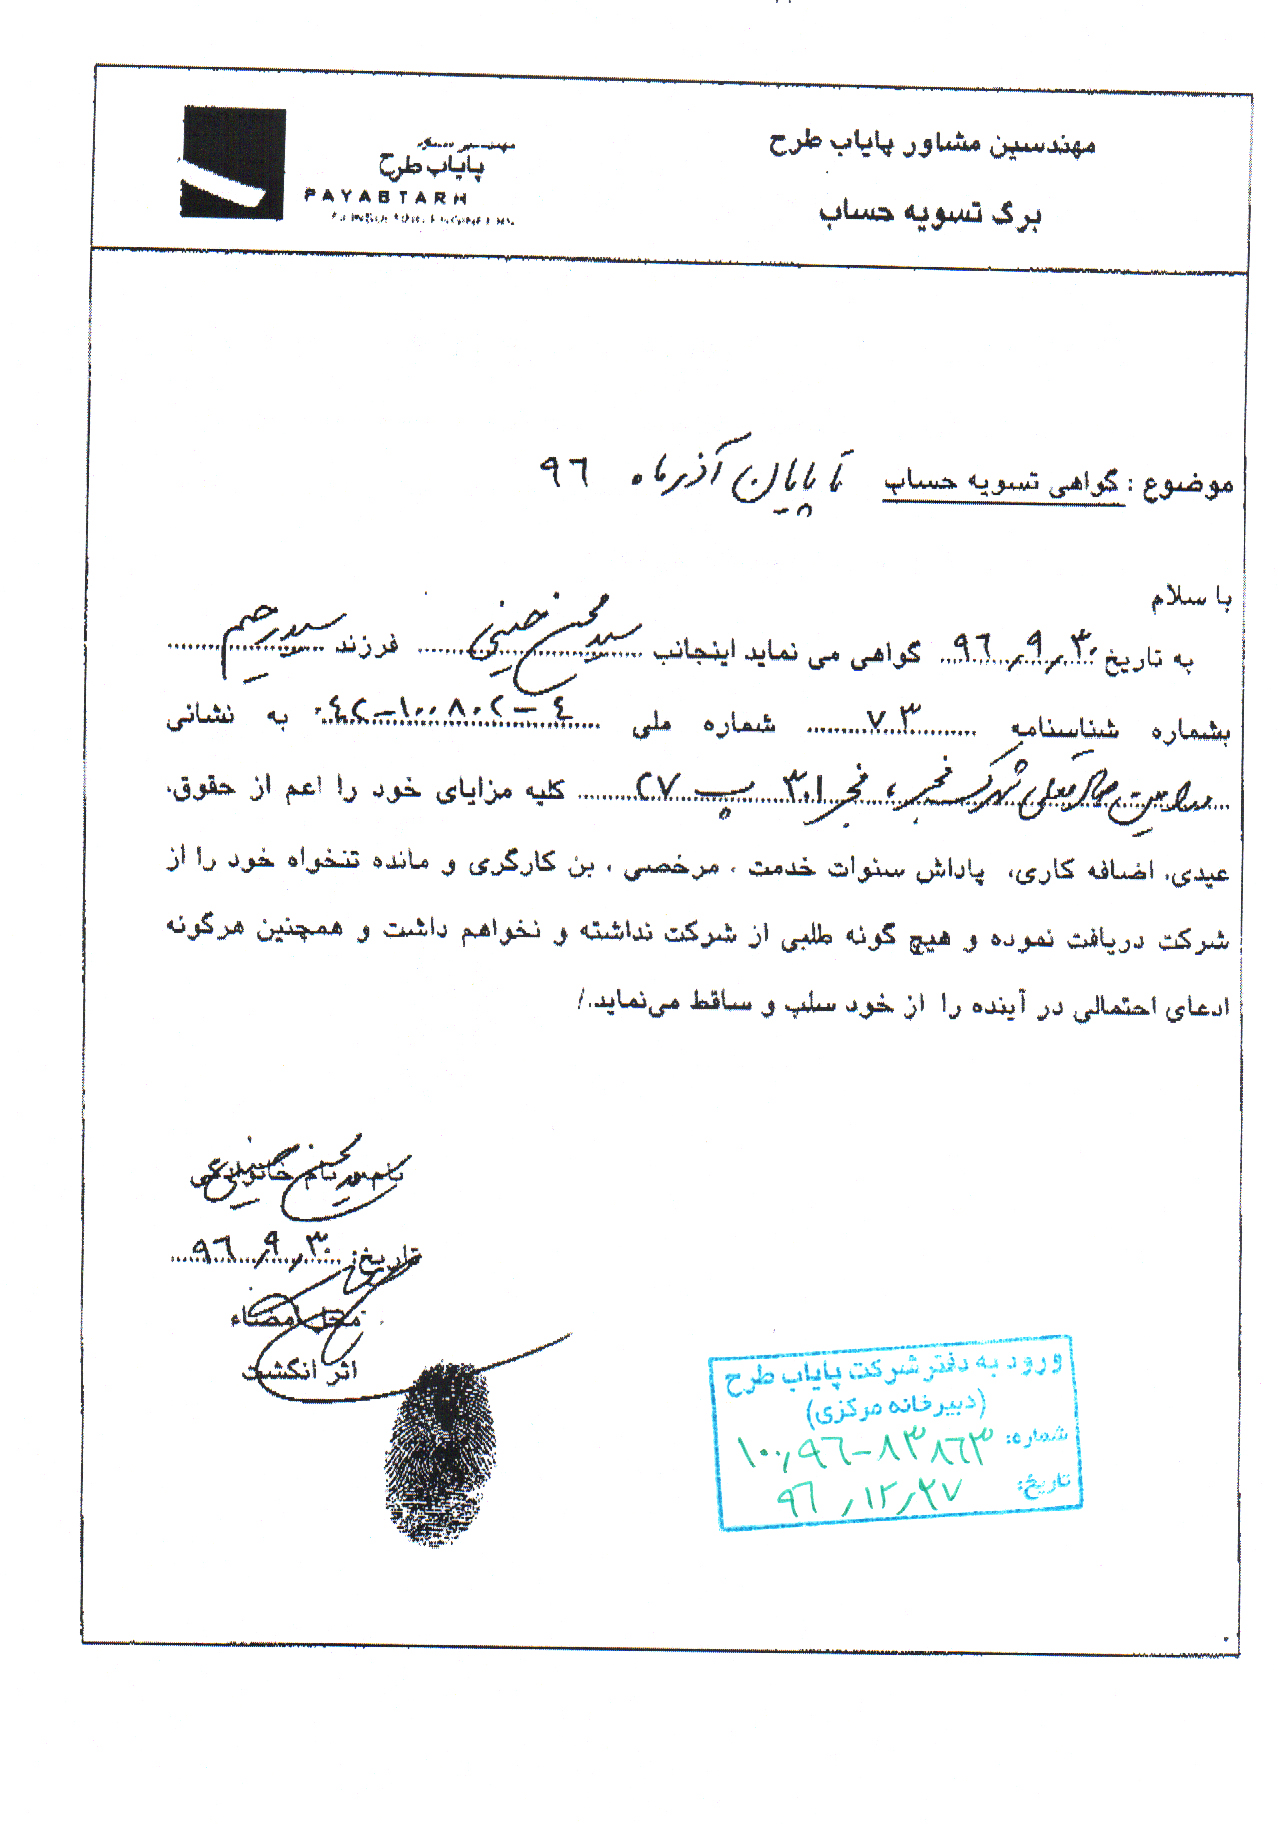 مهندسین مشاور پایاب طرح
برگ تسویه حساب
پایاب طرح
PAYABTARH
CONSULTING ENGINEERS
موضوع : گواهی تسویه حساب تا پایان آذر ماه ۹۶
با سلام
به تاریخ ۹۶,۹,۳۰ گواهی می نماید اینجانب سید محسن حسینی فرزند سید رحیم
بشماره شناسنامه ۷۳ شماره ملی ۰۴۲-۱۰۰۸۰۲-۴ به نشانی
شهرک فجر، فجر ۳۰۱ پ ۲۷ کلیه مزایای خود را اعم از حقوق،
عیدی، اضافه کاری، پاداش سنوات خدمت ، مرخصی ، بن کارگری و مانده تنخواه خود را از
شرکت دریافت نموده و هیچ گونه طلبی از شرکت نداشته و نخواهم داشت و همچنین هرگونه
ادعای احتمالی در آینده را از خود سلب و ساقط می‌نماید./
نام و نام خانوادگی
سید محسن حسینی
تاریخ: ۹۶,۹,۳۰
محل امضاء
اثر انگشت
ورود به دفتر شرکت پایاب طرح
(دبیرخانه مرکزی)
شماره: ۱۰۰,۹۶-۸۳۸۶۳
تاریخ: ۹۶,۱۲,۲۷